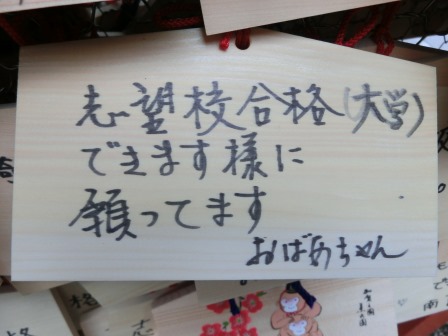 志望校合格(大学)
できます様に
願ってます
おばあちゃん